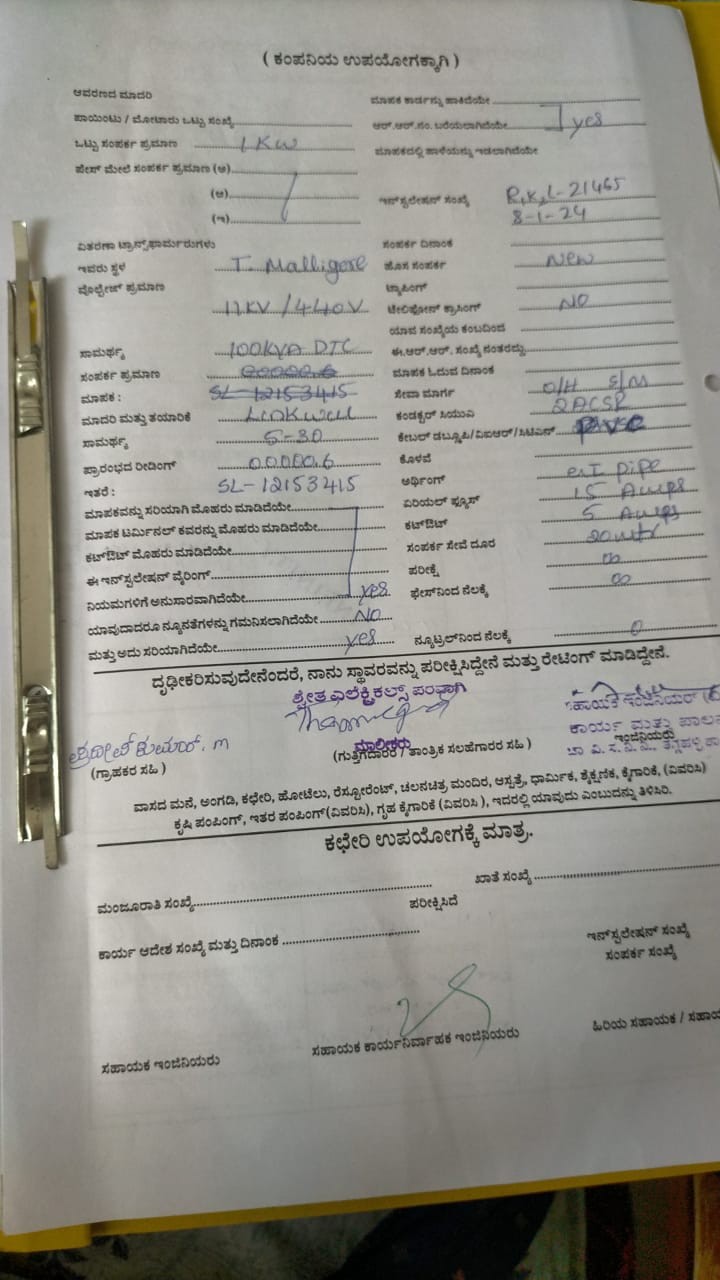 ( ಕಂಪನಿಯ ಉಪಯೋಗಕ್ಕಾಗಿ )
ಆವರಣದ ಮಾದರಿ
ಮಾಪಕ ಕಾರ್ಡನ್ನು ಹಾಕಿದೆಯೇ
ಪಾಯಿಂಟು / ಮೋಟಾರು ಒಟ್ಟು ಸಂಖ್ಯೆ
ಆರ್.ಆರ್.ನಂ. ಬರೆಯಲಾಗಿದೆಯೇ yes
ಒಟ್ಟು ಸಂಪರ್ಕ ಪ್ರಮಾಣ 1 KW
ಮಾಪಕದಲ್ಲಿ ಹಾಳೆಯನ್ನು ಇಡಲಾಗಿದೆಯೇ
ಫೇಸ್ ಮೇಲೆ ಸಂಪರ್ಕ ಪ್ರಮಾಣ (ಅ)
(ಆ)
(ಇ)
ಇನ್‌ಸ್ಟಲೇಷನ್ ಸಂಖ್ಯೆ R,K,L-21465
8-1-24
ವಿತರಣಾ ಟ್ರಾನ್ಸ್‌ಫಾರ್ಮರುಗಳು
ಸಂಪರ್ಕ ದಿನಾಂಕ
ಇವರು ಸ್ಥಳ T. Malligere
ಹೊಸ ಸಂಪರ್ಕ New
ವೊಲ್ಟೇಜ್ ಪ್ರಮಾಣ 11KV / 440V
ಟ್ಯಾಪಿಂಗ್
ಟೆಲಿಫೋನ್ ಕ್ರಾಸಿಂಗ್ NO
ಯಾವ ಸಂಖ್ಯೆಯ ಕಂಬದಿಂದ
ಸಾಮರ್ಥ್ಯ 100KVA DTC
ಈ.ಆರ್.ಆರ್. ಸಂಖ್ಯೆ ನಂತರದ್ದು
ಸಂಪರ್ಕ ಪ್ರಮಾಣ 00000.6
ಮಾಪಕ ಓದುವ ದಿನಾಂಕ
ಮಾಪಕ : SL-12153415
ಸೇವಾ ಮಾರ್ಗ O/H S/M
ಮಾದರಿ ಮತ್ತು ತಯಾರಿಕೆ LINKWELL
ಕಂಡಕ್ಟರ್ ಸಿಯುವಿ 2ACSR
ಸಾಮರ್ಥ್ಯ 5-30
ಕೇಬಲ್ ಡಬ್ಲೂಪಿ/ವಿಐಆರ್/ಸಿಟಿಎಸ್ PVC
ಪ್ರಾರಂಭದ ರೀಡಿಂಗ್ 00000.6
ಕೊಳವೆ
ಇತರೆ : SL-12153415
ಅರ್ಥಿಂಗ್ GI pipe
ಮಾಪಕವನ್ನು ಸರಿಯಾಗಿ ಮೊಹರು ಮಾಡಿದೆಯೇ
ಏರಿಯಲ್ ಫ್ಯೂಸ್ 15 Amps
ಮಾಪಕ ಟರ್ಮಿನಲ್ ಕವರನ್ನು ಮೊಹರು ಮಾಡಿದೆಯೇ
ಕಟ್‌ಔಟ್ 5 Amps
ಕಟ್‌ಔಟ್ ಮೊಹರು ಮಾಡಿದೆಯೇ
ಸಂಪರ್ಕ ಸೇವೆ ದೂರ 20mtr
ಈ ಇನ್‌ಸ್ಟಲೇಷನ್ ವೈರಿಂಗ್
ಪರೀಕ್ಷೆ ∞
ನಿಯಮಗಳಿಗೆ ಅನುಸಾರವಾಗಿದೆಯೇ yes
ಫೇಸ್‌ನಿಂದ ನೆಲಕ್ಕೆ ∞
ಯಾವುದಾದರೂ ನ್ಯೂನತೆಗಳನ್ನು ಗಮನಿಸಲಾಗಿದೆಯೇ NO
ಮತ್ತು ಅದು ಸರಿಯಾಗಿದೆಯೇ yes
ನ್ಯೂಟ್ರಲ್‌ನಿಂದ ನೆಲಕ್ಕೆ 0
ದೃಢೀಕರಿಸುವುದೇನೆಂದರೆ, ನಾನು ಸ್ಥಾವರವನ್ನು ಪರೀಕ್ಷಿಸಿದ್ದೇನೆ ಮತ್ತು ರೇಟಿಂಗ್ ಮಾಡಿದ್ದೇನೆ.
ಶ್ವೇತ ಎಲೆಕ್ಟ್ರಿಕಲ್ಸ್ ಪರವಾಗಿ
ಸಹಾಯಕ ಇಂಜಿನಿಯರ್
ಕಾರ್ಯ ಮತ್ತು ಪಾಲನ
ಮಾಲೀಕರು
ಇಂಜಿನಿಯರು
ಪ್ರದೀಪ್ ಕುಮಾರ್. m
(ಗ್ರಾಹಕರ ಸಹಿ )
(ಗುತ್ತಿಗೆದಾರರ / ತಾಂತ್ರಿಕ ಸಲಹೆಗಾರರ ಸಹಿ )
ವಾಸದ ಮನೆ, ಅಂಗಡಿ, ಕಛೇರಿ, ಹೋಟೆಲು, ರೆಸ್ಟೋರೆಂಟ್, ಚಲನಚಿತ್ರ ಮಂದಿರ, ಆಸ್ಪತ್ರೆ, ಧಾರ್ಮಿಕ, ಶೈಕ್ಷಣಿಕ, ಕೈಗಾರಿಕೆ, (ವಿವರಿಸಿ)
ಕೃಷಿ ಪಂಪಿಂಗ್, ಇತರ ಪಂಪಿಂಗ್(ವಿವರಿಸಿ), ಗೃಹ ಕೈಗಾರಿಕೆ (ವಿವರಿಸಿ ), ಇದರಲ್ಲಿ ಯಾವುದು ಎಂಬುದನ್ನು ತಿಳಿಸಿರಿ.
ಕಛೇರಿ ಉಪಯೋಗಕ್ಕೆ ಮಾತ್ರ.
ಮಂಜೂರಾತಿ ಸಂಖ್ಯೆ
ಖಾತೆ ಸಂಖ್ಯೆ
ಪರೀಕ್ಷಿಸಿದೆ
ಕಾರ್ಯ ಆದೇಶ ಸಂಖ್ಯೆ ಮತ್ತು ದಿನಾಂಕ
ಇನ್‌ಸ್ಟಲೇಷನ್ ಸಂಖ್ಯೆ
ಸಂಪರ್ಕ ಸಂಖ್ಯೆ
ಸಹಾಯಕ ಇಂಜಿನಿಯರು
ಸಹಾಯಕ ಕಾರ್ಯನಿರ್ವಾಹಕ ಇಂಜಿನಿಯರು
ಹಿರಿಯ ಸಹಾಯಕ / ಸಹಾಯ